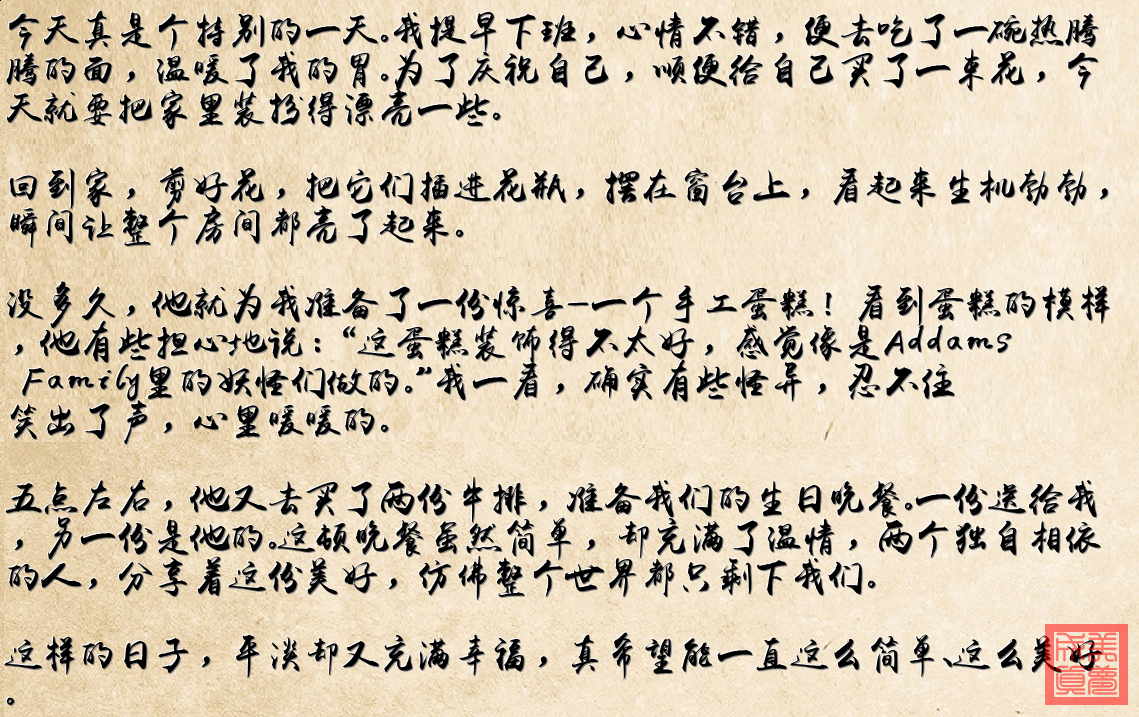 今天真是个特别的一天。我提早下班，心情不错，便去吃了一碗热腾
腾的面，温暖了我的胃。为了庆祝自己，顺便给自己买了一束花，今
天就要把家里装扮得漂亮一些。
回到家，剪好花，把它们插进花瓶，摆在窗台上，看起来生机勃勃，
瞬间让整个房间都亮了起来。
没多久，他就为我准备了一份惊喜-一个手工蛋糕！看到蛋糕的模样
，他有些担心地说：“这蛋糕装饰得不太好，感觉像是Addams
Family里的妖怪们做的。”我一看，确实有些怪异，忍不住
笑出了声，心里暖暖的。
五点左右，他又去买了两份牛排，准备我们的生日晚餐。一份送给我
，另一份是他的。这顿晚餐虽然简单，却充满了温情，两个独自相依
的人，分享着这份美好，仿佛整个世界都只剩下我们。
这样的日子，平淡却又充满幸福，真希望能一直这么简单、这么美好
。
美梦成真